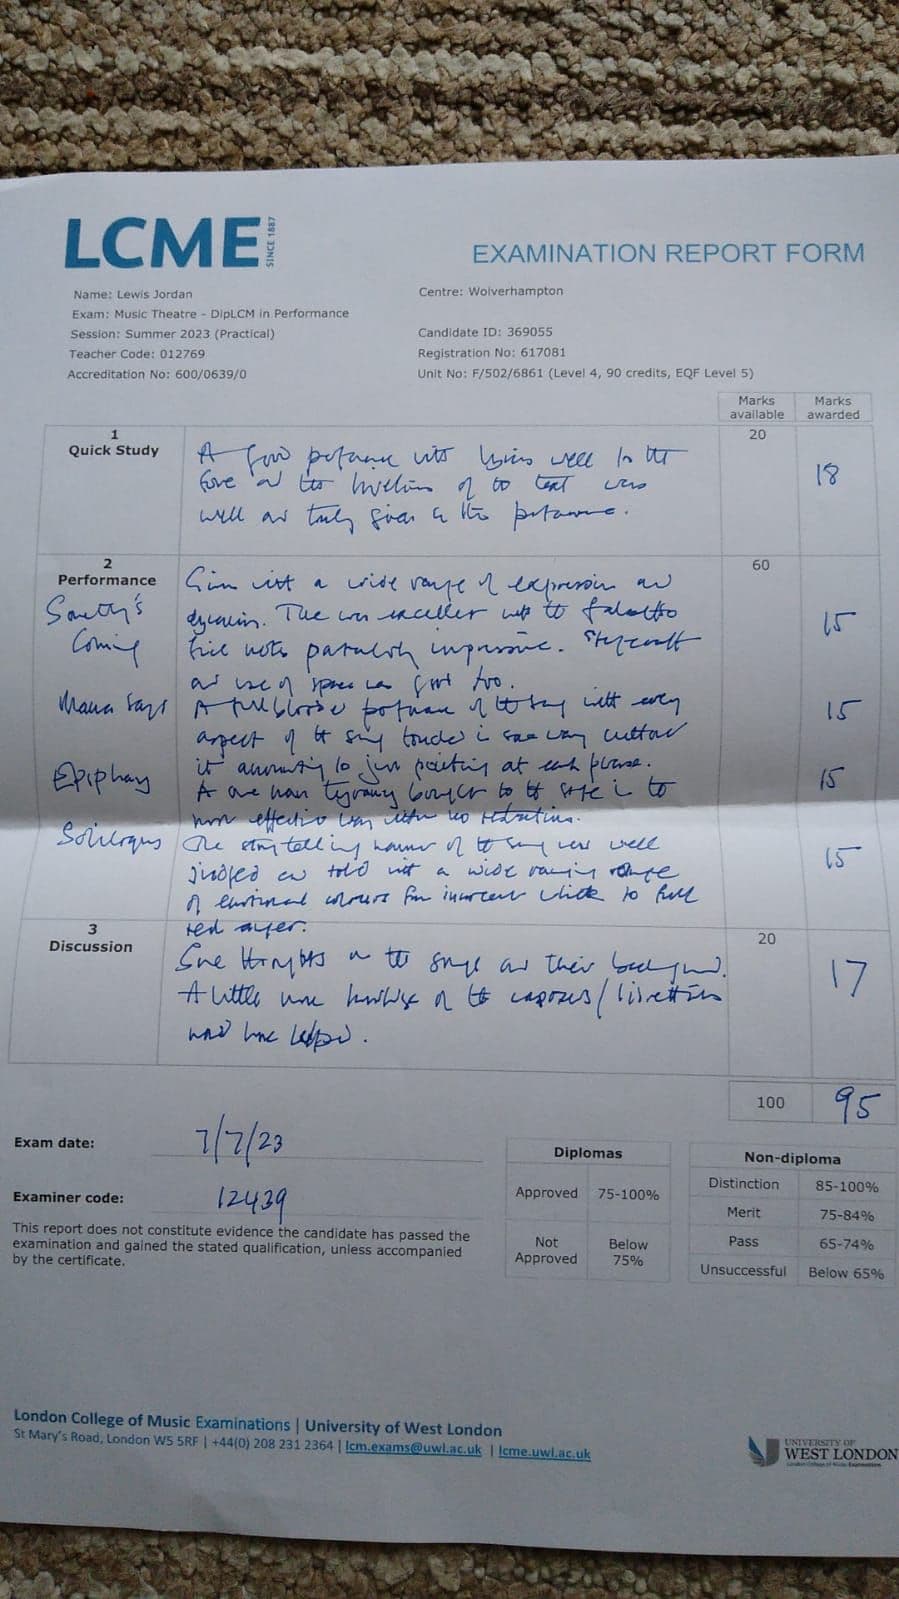 LCME
SINCE 1887
EXAMINATION REPORT FORM
Name: Lewis Jordan
Exam: Music Theatre - DipLCM in Performance
Session: Summer 2023 (Practical)
Teacher Code: 012769
Accreditation No: 600/0639/0
Centre: Wolverhampton
Candidate ID: 369055
Registration No: 617081
Unit No: F/502/6861 (Level 4, 90 credits, EQF Level 5)
Marks available
Marks awarded
1
Quick Study
A good performance with well to the
of the text was
well and truly given in the performance.
20
18
2
Performance
60
Something's
Coming
with a wide range of expression and
The was excellent with the falsetto
notes particularly impressive. Stagecraft
and use of space was good too.
15
Mama Says
A full blooded performance of the song with every
aspect of the song in some way
it amounting to just at each phrase.
15
Epiphany
A one man to the stage in the
most effective way with no
15
Soliloquy
The storytelling manner of the song was well
judged and told with a wide range
of emotional colours from innocent to full
red anger.
15
3
Discussion
Some thoughts on the songs and their background.
A little more knowledge of the composers/librettists
would have helped.
20
17
100
95
Exam date:
7/7/23
Examiner code:
12439
This report does not constitute evidence the candidate has passed the
examination and gained the stated qualification, unless accompanied
by the certificate.
Diplomas
Approved 75-100%
Not Approved Below 75%
Non-diploma
Distinction 85-100%
Merit 75-84%
Pass 65-74%
Unsuccessful Below 65%
London College of Music Examinations | University of West London
St Mary's Road, London W5 5RF | +44(0) 208 231 2364 | lcm.exams@uwl.ac.uk | lcme.uwl.ac.uk
UNIVERSITY OF
WEST LONDON
London College of Music Examinations